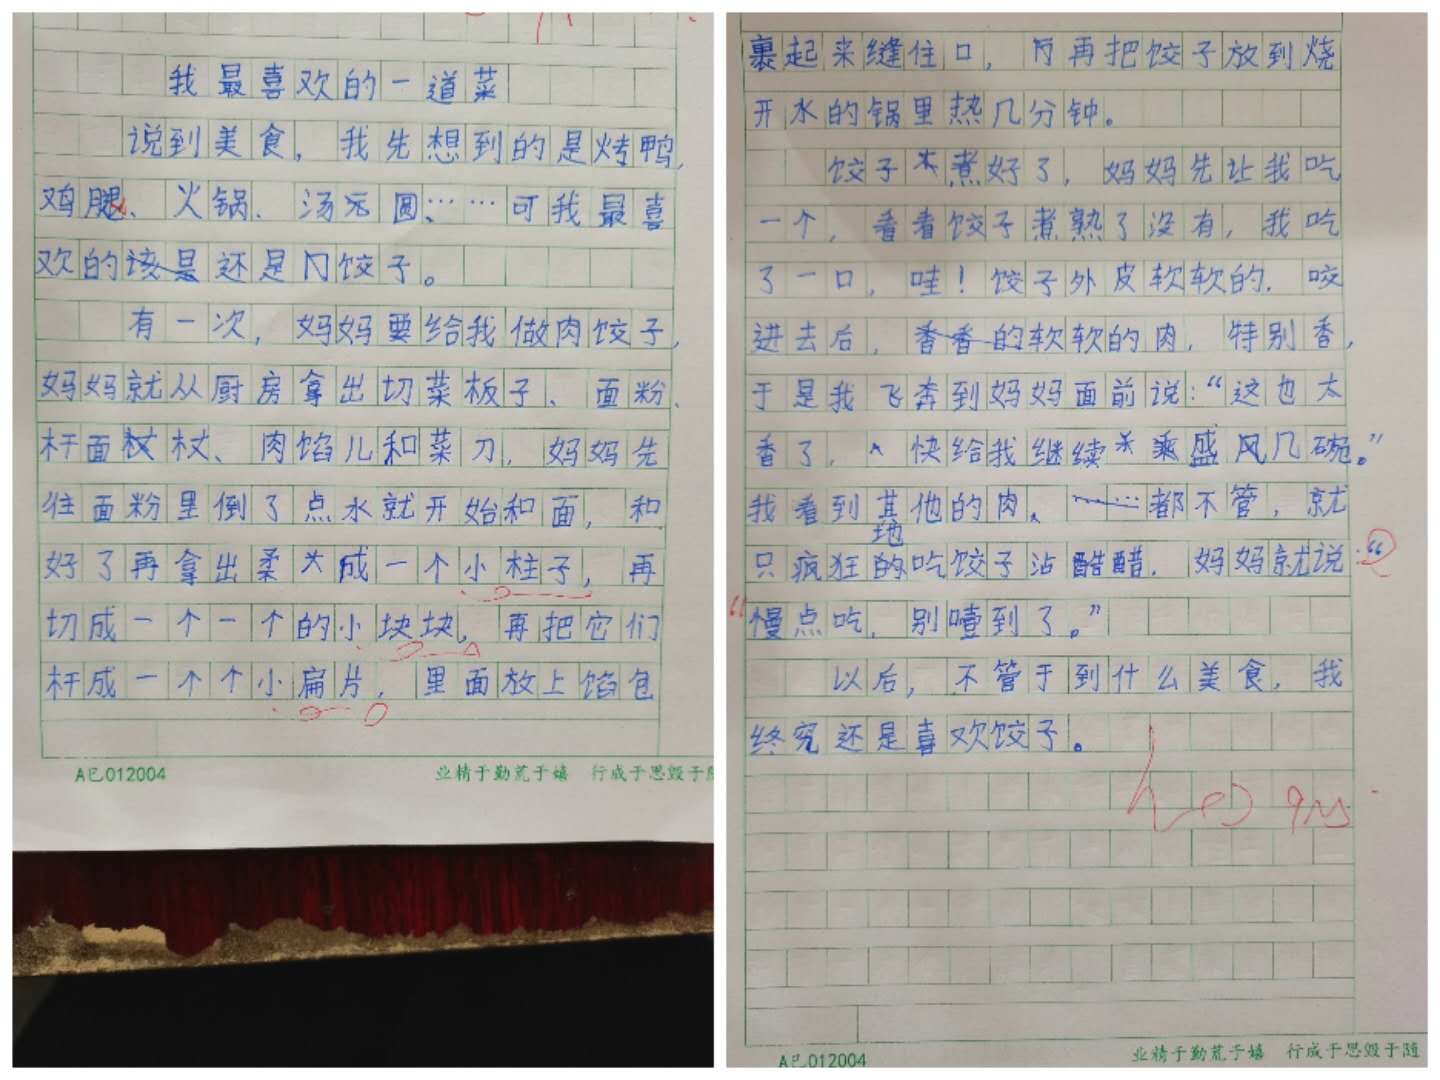 我最喜欢的一道菜
说到美食，我先想到的是烤鸭、
鸡腿、火锅、汤元圆、……可我最喜
欢的还是饺子。
有一次，妈妈要给我做肉饺子，
妈妈就从厨房拿出切菜板子、面粉、
杆面杖、肉馅儿和菜刀，妈妈先
往面粉里倒了点水就开始和面，和
好了再拿出柔成一个小柱子，再
切成一个一个的小块块，再把它们
杆成一个个小扁片，里面放上馅包
A己012004
业精于勤荒于嬉 行成于思毁于随
裹起来缝住口，再把饺子放到烧
开水的锅里热几分钟。
饺子煮好了，妈妈先让我吃
一个，看看饺子煮熟了没有，我吃
了一口，哇！饺子外皮软软的，咬
进去后，软软的肉，特别香，
于是我飞奔到妈妈面前说：“这也太
香了，快给我继续盛几碗。”
我看到其他的肉、都不管，就
只疯狂地吃饺子沾醋，妈妈就说：“
“慢点吃，别噎到了。”
以后，不管于到什么美食，我
终究还是喜欢饺子。
A己012004
业精于勤荒于嬉 行成于思毁于随